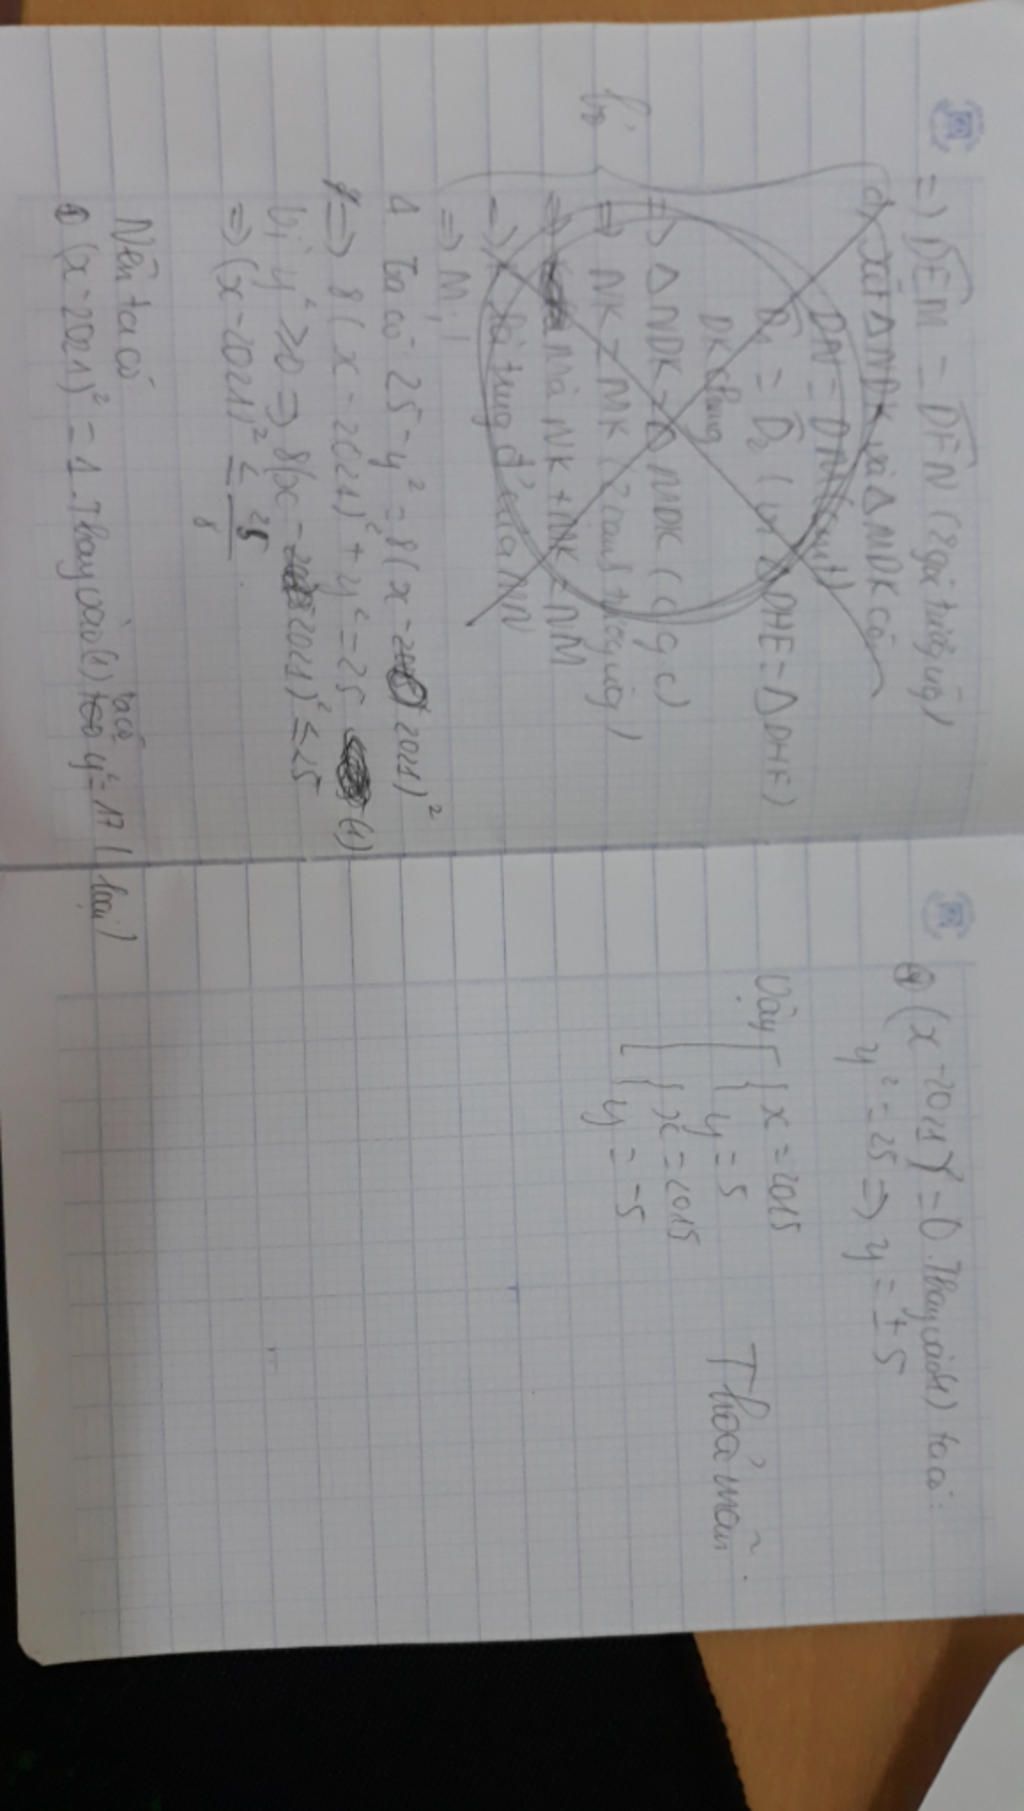 =) DEM = DFN (2 góc tương ứng)
d, xét Δ NDK và Δ MDK có
DN = DM (cmt)
D₁ = D₂ (vì Δ DHE = Δ DHF)
DK chung
=) Δ NDK = Δ MDK (c.g.c)
=) NK = MK (2 cạnh tương ứng)
=) mà NK + MK = NM
=) K là trung đ' của MN
=) M, 1
bỏ
4 Ta có 25 - y² = 8(x - 2021)²
=) 8(x - 2021)² + y² = 25 (1)
Vì y² ≥ 0 =) 8(x - 2021)² ≤ 25
=) (x - 2021)² ≤ 25/8
Nên ta có
(x - 2021)² = 1. Thay vào (1) ta có y² = 17 (loại)
(x - 2021)² = 0. Thay vào (1) ta có:
y² = 25 =) y = ± 5
Vậy [ { x = 2015
y = 5
{ x = 2015
y = -5
Thoả mãn.